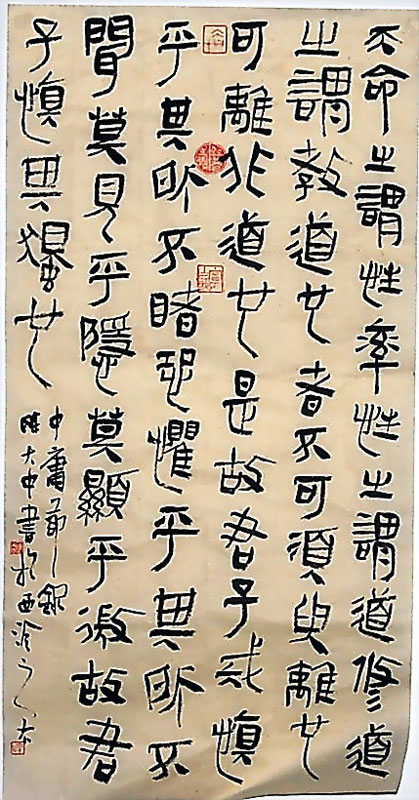 天命之謂性率性之謂道修道
之謂教道也者不可須臾離也
可離非道也是故君子戒慎
乎其所不睹恐懼乎其所不
聞莫見乎隱莫顯乎微故君
子慎其獨也
中庸
陳大中書於西泠